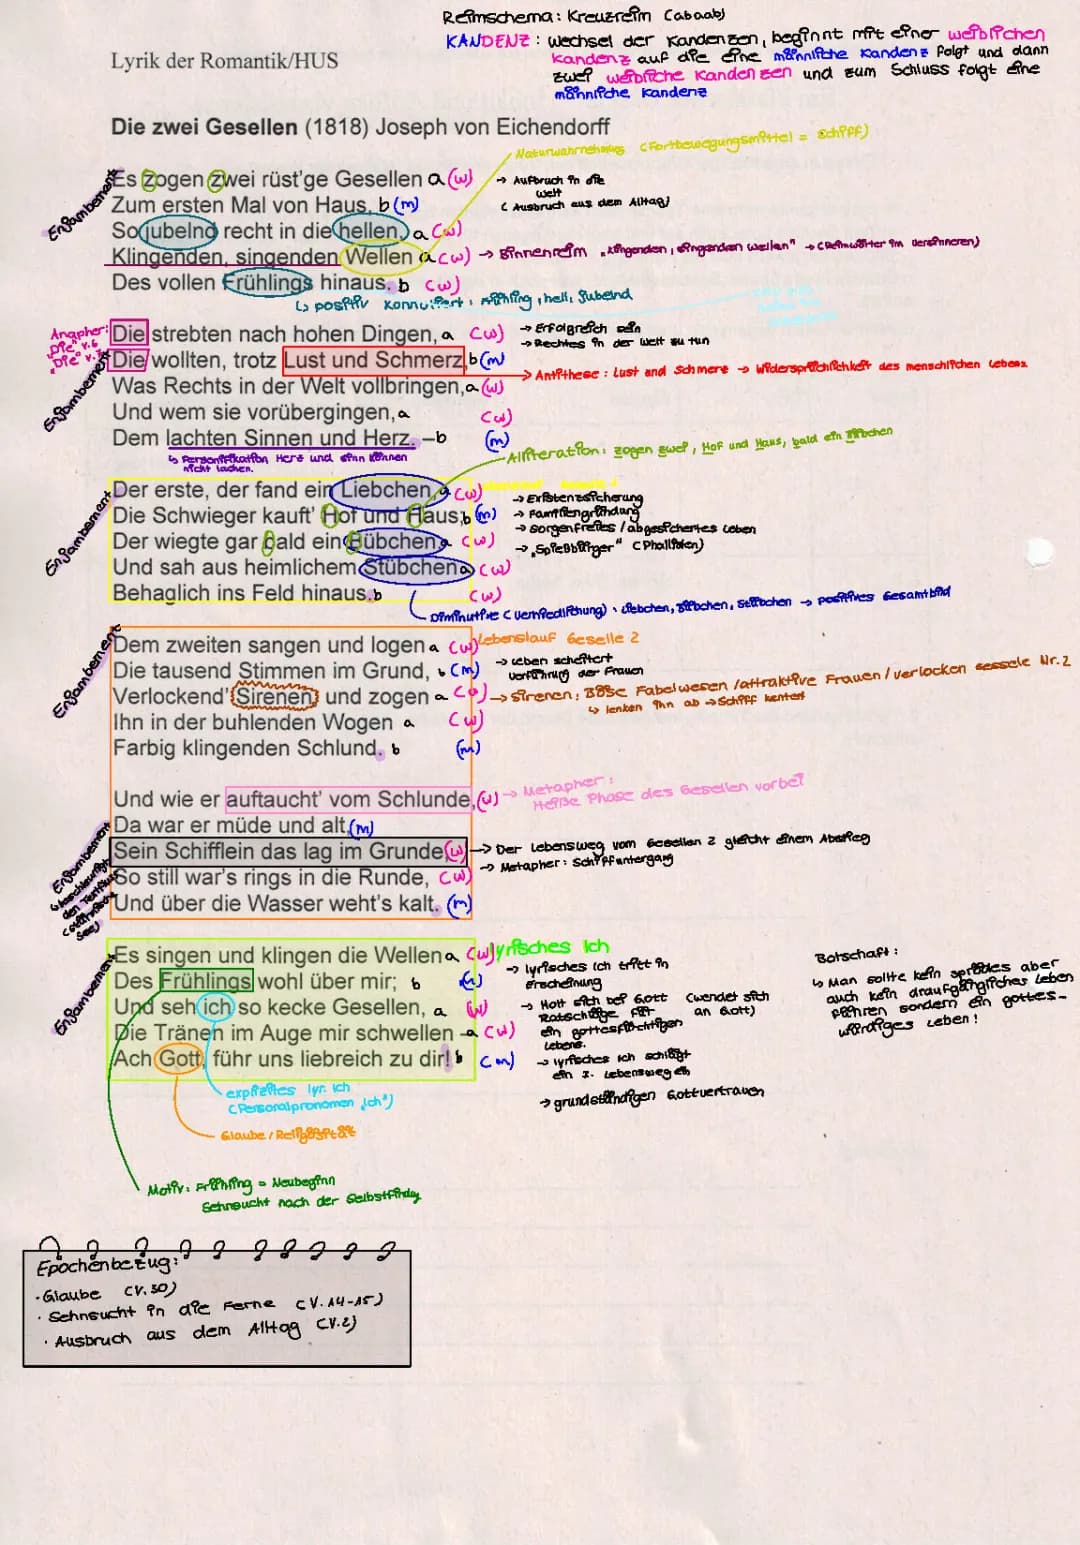 Reimschema: Kreuzreim (abaab)
KANDENZ: Wechsel der Kandenzen, beginnt mit einer weiblichen
Kandenz auf die eine männliche Kandenz folgt und dann
zwei weibliche Kandenzen und zum Schluss folgt eine
männliche Kandenz
Lyrik der Romantik/HUS
Die zwei Gesellen (1818) Joseph von Eichendorff
Naturwahrnehmung (Fortbewegungsmittel = Schiff)
Enjambement
Es zogen zwei rüst'ge Gesellen a (w) → Aufbruch in die
Welt
Zum ersten Mal von Haus, b (m) (Ausbruch aus dem Alltag)
So jubelnd recht in die hellen, a (w)
Klingenden, singenden Wellen a (w) → Binnenreim "klingenden, singenden Wellen" → (Reimwörter im Versinneren)
Des vollen Frühlings hinaus. b (w)
↳ positiv konnotiert: Frühling, hell, jubelnd
Anapher:
"Die" v.6
"Die" v.7
Enjambement
Die strebten nach hohen Dingen, a (w) → Erfolgreich sein
→ Rechtes in der Welt zu tun
Die wollten, trotz Lust und Schmerz, b (m)
→ Antithese: Lust und Schmerz → Widersprüchlichkeit des menschlichen Lebens
Was Rechts in der Welt vollbringen, a (w)
Und wem sie vorübergingen, a (w)
Dem lachten Sinnen und Herz. – b (m)
↳ Personifikation Herz und Sinn können
nicht lachen.
Alliteration: zogen zwei, Hof und Haus, bald ein Bübchen
Enjambement
Der erste, der fand ein Liebchen, a (w) → Existenzsicherung
Die Schwieger kauft' Hof und Haus; b (m) → Familiengründung
→ sorgenfreies / abgesichertes Leben
Der wiegte gar bald ein Bübchen, a (w) → "Spießbürger" (Philister)
Und sah aus heimlichem Stübchen a (w)
Behaglich ins Feld hinaus. b (w)
Diminutive (Verniedlichung): Liebchen, Bübchen, Stübchen → positives Gesamtbild
Enjambement
Dem zweiten sangen und logen a (w) Lebenslauf Geselle 2
Die tausend Stimmen im Grund, b (m) → Leben scheitert
Verführung der Frauen
Verlockend' Sirenen, und zogen a (w) → Sirenen: Böse Fabelwesen / attraktive Frauen / verlocken Gessele Nr. 2
↳ lenken ihn ab → Schiff kentert
Ihn in der buhlenden Wogen a (w)
Farbig klingenden Schlund. b (m)
Und wie er auftaucht' vom Schlunde, (w) → Metapher:
Heiße Phase des Gesellen vorbei
Da war er müde und alt, (m)
Sein Schifflein das lag im Grunde, (w) → Der Lebensweg vom Gesellen 2 gleicht einem Abstieg
→ Metapher: Schiffuntergang
So still war's rings in die Runde, (w)
Und über die Wasser weht's kalt. (m)
Enjambement
↳ beschleunigt
den Textfluss
(stürmische
See)
Enjambement
Es singen und klingen die Wellen a (w) lyrisches Ich
Des Frühlings wohl über mir; b (m) → lyrisches Ich tritt in
Erscheinung
Und seh ich so kecke Gesellen, a (w) → Holt sich bei Gott (wendet sich
Ratschläge für an Gott)
Die Tränen im Auge mir schwellen – a (w) ein gottesfürchtigen
Lebens.
Ach Gott, führ uns liebreich zu dir! b (m) → lyrisches Ich schlägt
ein 3. Lebensweg ein
→ grundständigen Gottvertrauen
Botschaft:
↳ Man sollte kein sprödes aber
auch kein draufgängliches Leben
führen sondern ein gottes-
würdiges Leben!
explizites lyr. Ich
(Personalpronomen "Ich")
Glaube / Religiosität
Motiv: Frühling = Neubeginn
Sehnsucht nach der Selbstfindung
Epochenbezug:
· Glaube (V.30)
· Sehnsucht in die Ferne (V.14-15)
· Ausbruch aus dem Alltag (V.2)